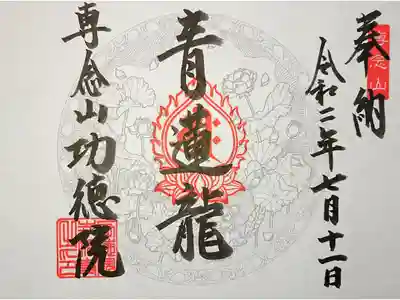 奉納
専念山
令和二年七月十一日
青蓮龍
専念山功徳院